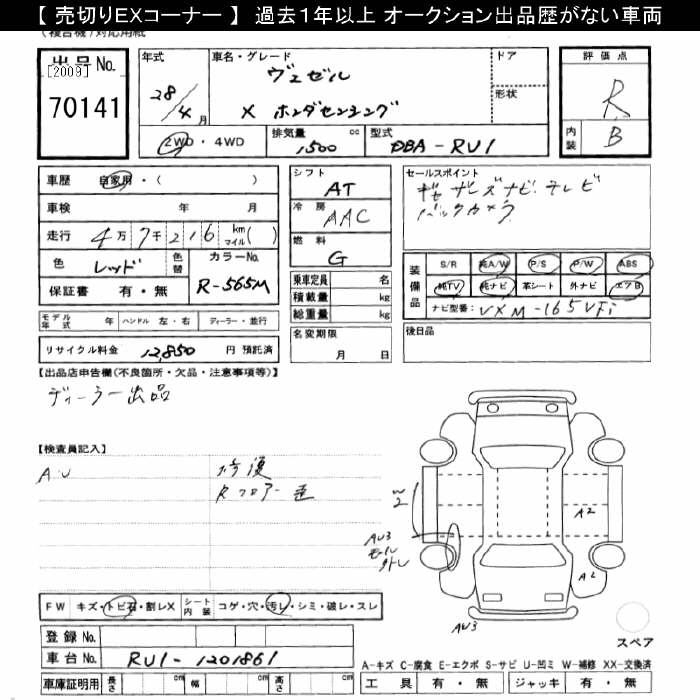 【 売切りEXコーナー 】 過去1年以上 オークション出品歴がない車両
(複合機)対応用紙
出品No. [2009]
70141
年式 28/4月
車名・グレード ヴェゼル
X ホンダセンシング
ドア
形状
評価点 R
内装 B
2WD・4WD
排気量 1500 cc
型式 DBA-RU1
車歴 自家用・( )
車検 年 月
走行 4万7千216 km マイル( )
色 レッド 色替
カラーNo. R-565M
保証書 有・無
シフト AT
冷房 AAC
燃料 G
乗車定員 名
積載量 kg
総重量 kg
セールスポイント
ギャザーズナビ テレビ
バックカメラ
装備品
S/R 純A/W P/S P/W ABS
純TV 純ナビ 革シート 外ナビ エアB
ナビ型番: VXM-165VFi
モデル年式 年 ハンドル 左・右 ディーラー・並行
名変期限 月 日
後日品
リサイクル料金 12,850 円 預託済
【出品店申告欄(不良箇所・欠品・注意事項等)】
ディーラー出品
【検査員記入】
A.U
修復
Rフロアー歪
W2
AU3
モール
外レ
A2
A2
AU3
FW キズ・トビ石・割レX
シート内装 コゲ・穴・汚レ・シミ・破レ・スレ
スペア
登録No.
車台No. RU1-1201861
A-キズ C-腐食 E-エクボ S-サビ U-凹ミ W-補修 XX-交換済
車庫証明用 長さ cm 幅 cm 高さ cm
工具 有・無 ジャッキ 有・無